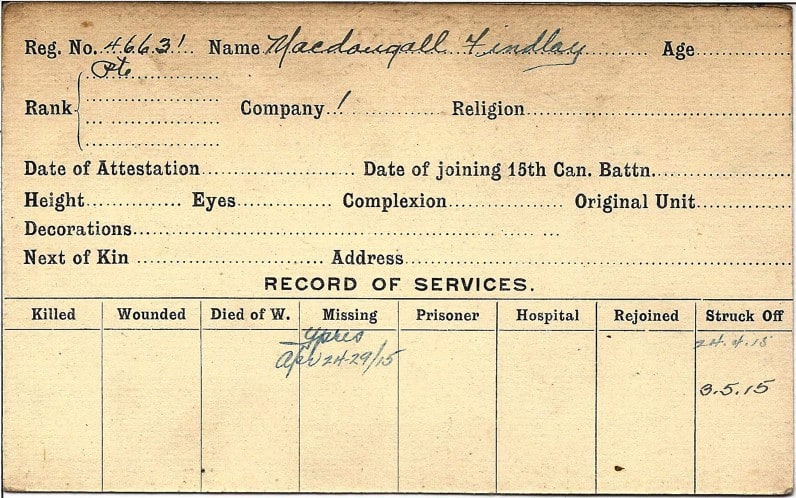 Reg. No. 46631 Name Macdougall Findlay Age
Pte
Rank Company 1 Religion
Date of Attestation Date of joining 15th Can. Battn.
Height Eyes Complexion Original Unit
Decorations
Next of Kin Address
RECORD OF SERVICES.
Killed Wounded Died of W. Missing Prisoner Hospital Rejoined Struck Off
Ypres 24.4.15
Apr 24-29/15
3.5.15